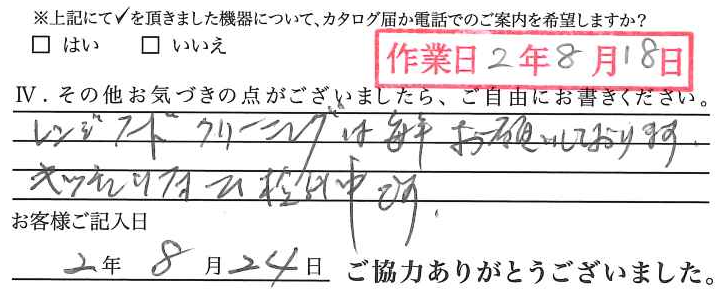 ※上記にて✓を頂きました機器について、カタログ届か電話でのご案内を希望しますか?
□ はい □ いいえ
作業日 2年8月18日
Ⅳ. その他お気づきの点がございましたら、ご自由にお書きください。
レンジフードクリーニングは毎年お願いしております。
キッチンリフォーム検討中です。
お客様ご記入日
2年 8月24日 ご協力ありがとうございました。